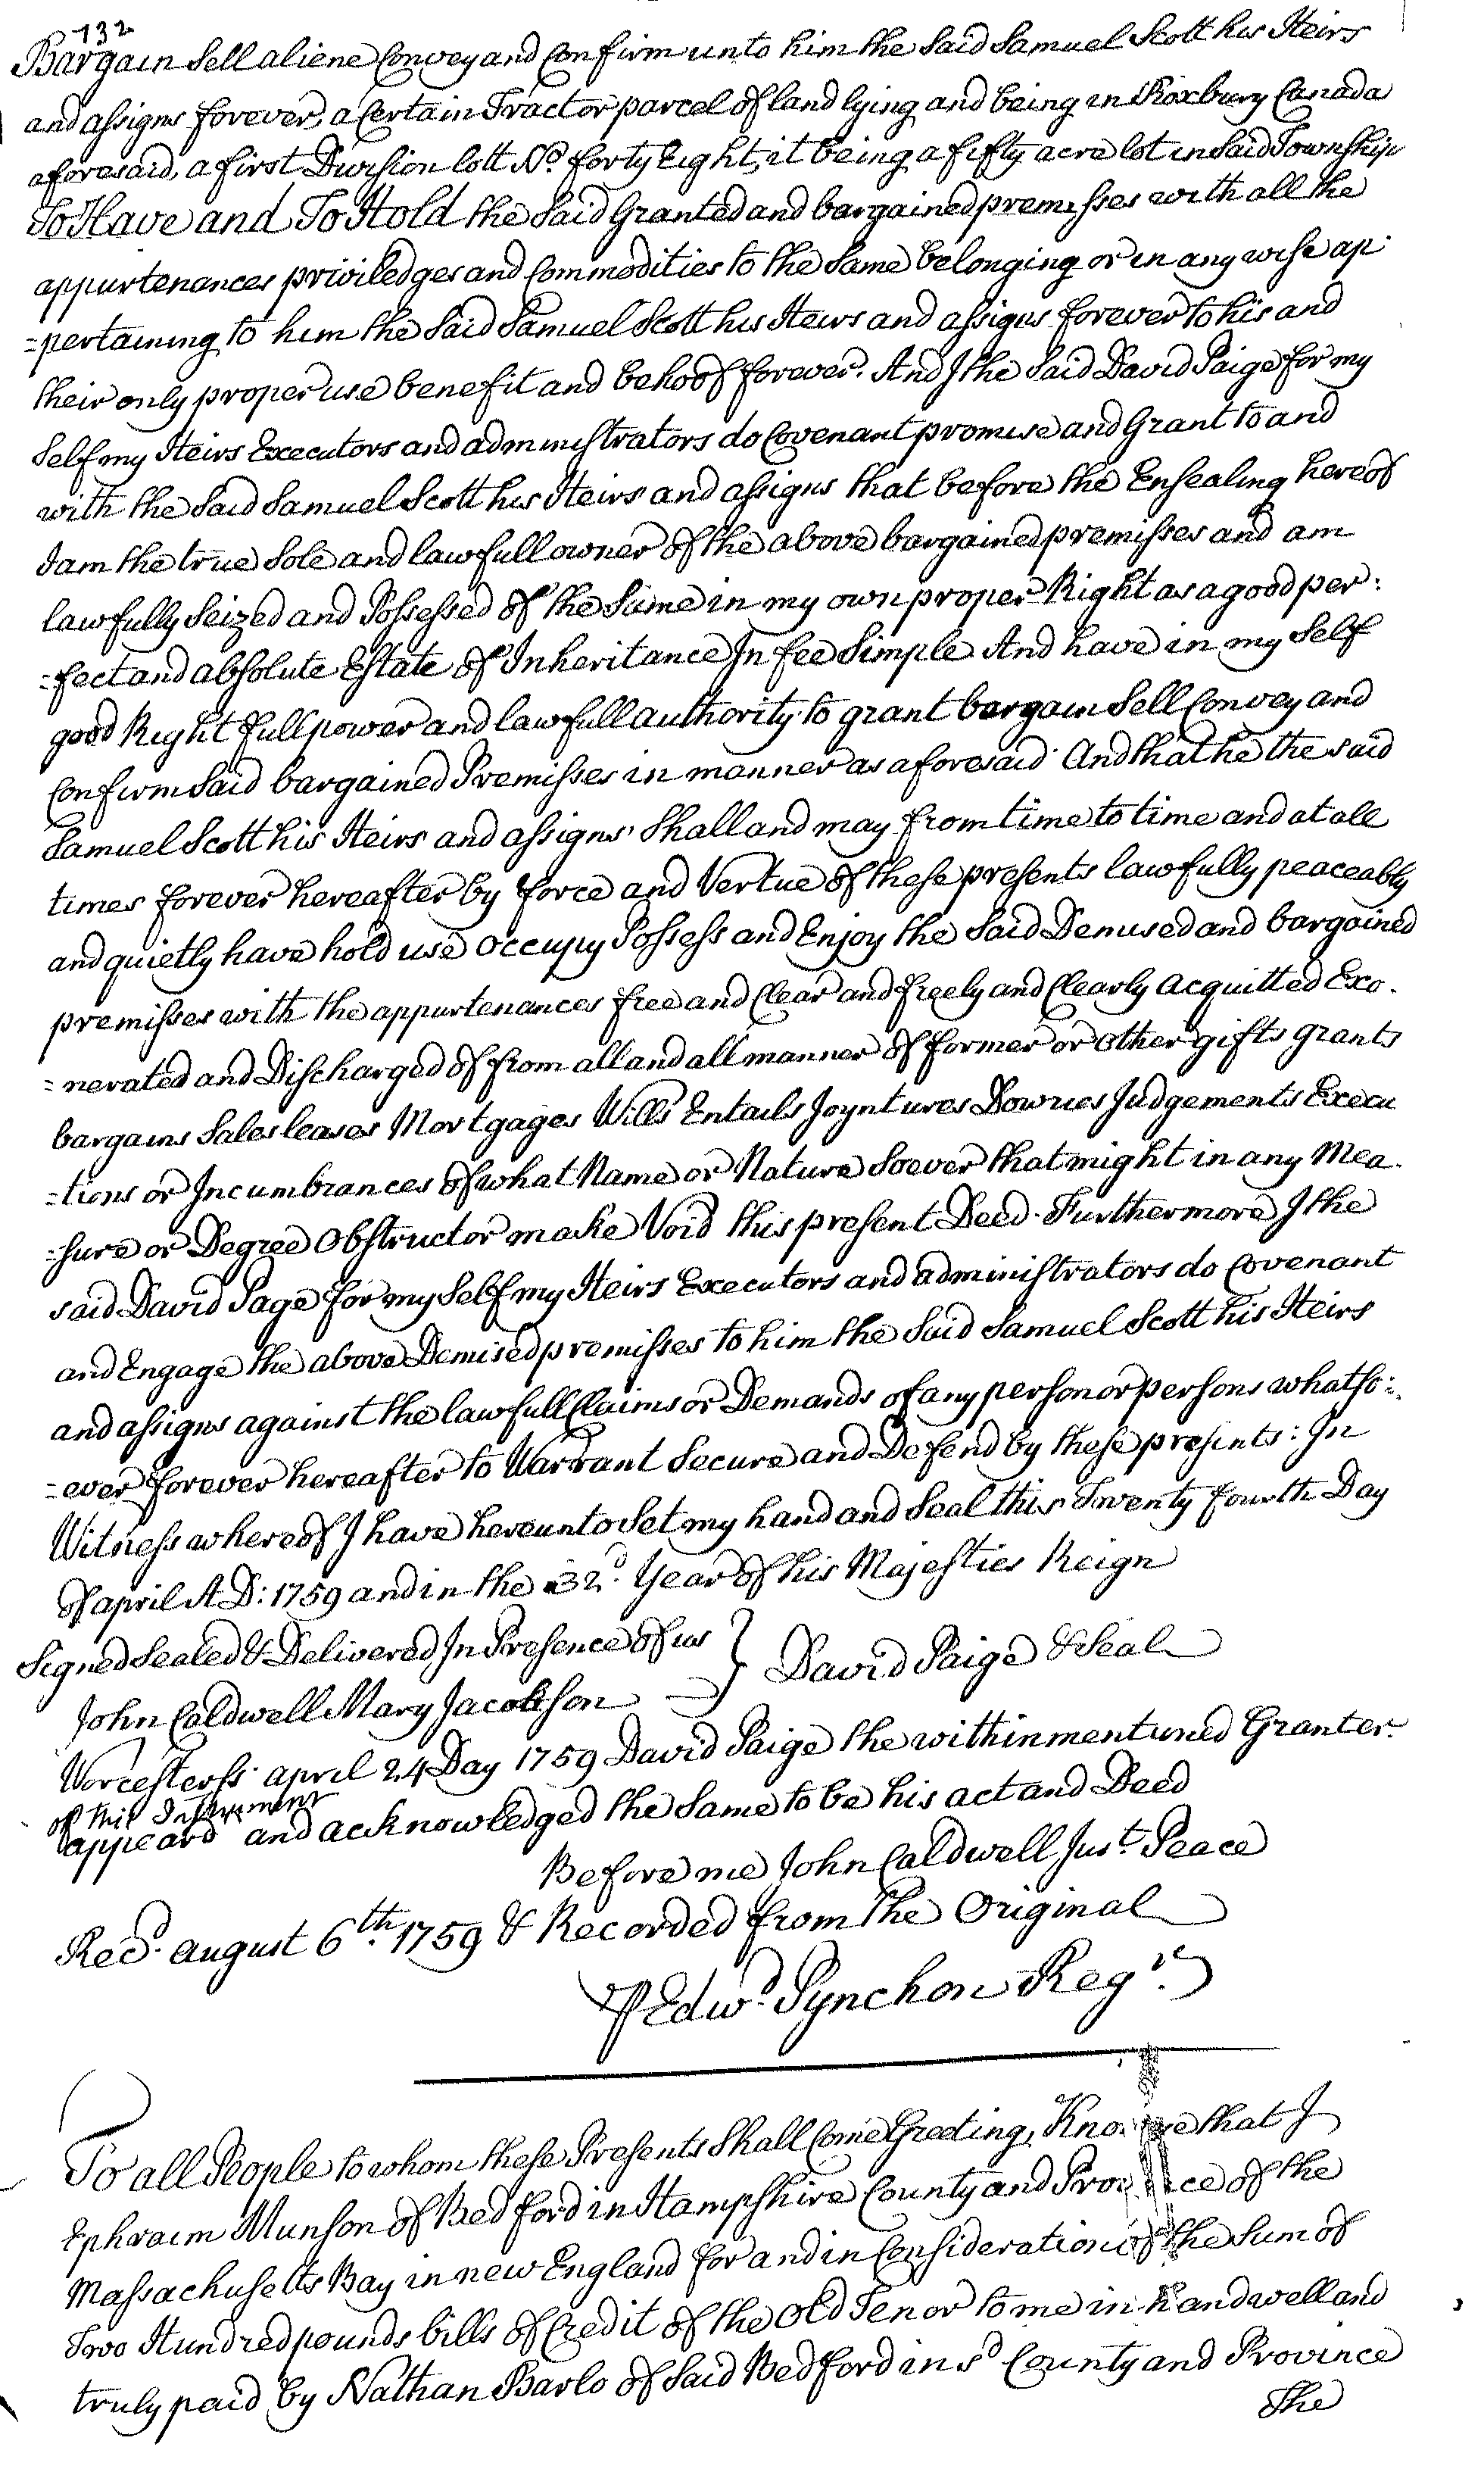 132
Bargain Sell aliene Convey and Confirm unto him the Said Samuel Scott his Heirs
and assigns forever, a Certain Tract or parcel of land lying and being in Roxbury Canada
aforesaid, a first Division lott No. forty Eight, it being a fifty acre lot in Said Township
To Have and To Hold the Said Granted and bargained premisses with all the
appurtenances priviledges and Commodities to the Same belonging or in any wise ap
=pertaining to him the Said Samuel Scott his Heirs and assigns forever to his and
their only proper use benefit and behoof forever. And I the Said David Paige for my
Self my Heirs Executors and administrators do Covenant promise and Grant to and
with the Said Samuel Scott his Heirs and assigns that before the Ensealing hereof
I am the true Sole and lawfull owner of the above bargained premisses and am
lawfully Seized and Possessed of the Same in my own proper Right as a good per:
=fect and absolute Estate of Inheritance In fee Simple And have in my Self
good Right full power and lawfull authority to grant bargain Sell Convey and
Confirm Said bargained Premisses in manner as aforesaid And that he the said
Samuel Scott his Heirs and assigns Shall and may from time to time and at all
times forever hereafter by force and Vertue of these presents lawfully peaceably
and quietly have hold use occupy Possess and Enjoy the Said Demised and bargained
premisses with the appurtenances free and Clear and freely and Clearly acquitted Exo.
=nerated and Discharged of from all and all manner of former or other gifts grants
bargains Sales leases Mortgages Wills Entails Joyntures Dowries Judgements Execu
=tions or Incumbrances of what Name or Nature Soever that might in any Mea.
=sure or Degree Obstruct or make Void this present Deed. Furthermore I the
said David Page for my Self my Heirs Executors and administrators do Covenant
and Engage the above Demised premisses to him the Said Samuel Scott his Heirs
and assigns against the lawfull Claims or Demands of any person or persons whatso=
=ever forever hereafter to Warrant Secure and Defend by these presints: In
Witness whereof I have hereunto Set my hand and Seal this Twenty fourth Day
of april A D: 1759 and in the 32d. Year of his Majesties Reign
Signed Sealed & Delivered In Presence of us } David Paige & Seal
John Caldwell Mary Jacobson
Worcester ss april 24 Day 1759 David Paige the within mentuned Granter
of this Instrument
appeard and acknowledged the Same to be his act and Deed
Before me John Caldwell Just. Peace
Recd. august 6th. 1759 & Recorded from the Original
P Edwd. Pynchon Regr.
To all People to whom these Presents Shall Come Greeting, Know ye that I
Ephraim Munson of Bedford in Hampshire County and Province of the
Massachusetts Bay in new England for and in Consideration of the Sum of
Two Hundred pounds bills of Credit of the old Tenor to me in hand well and
truly paid by Nathan Barlo of Said Bedford in sd County and Province
The